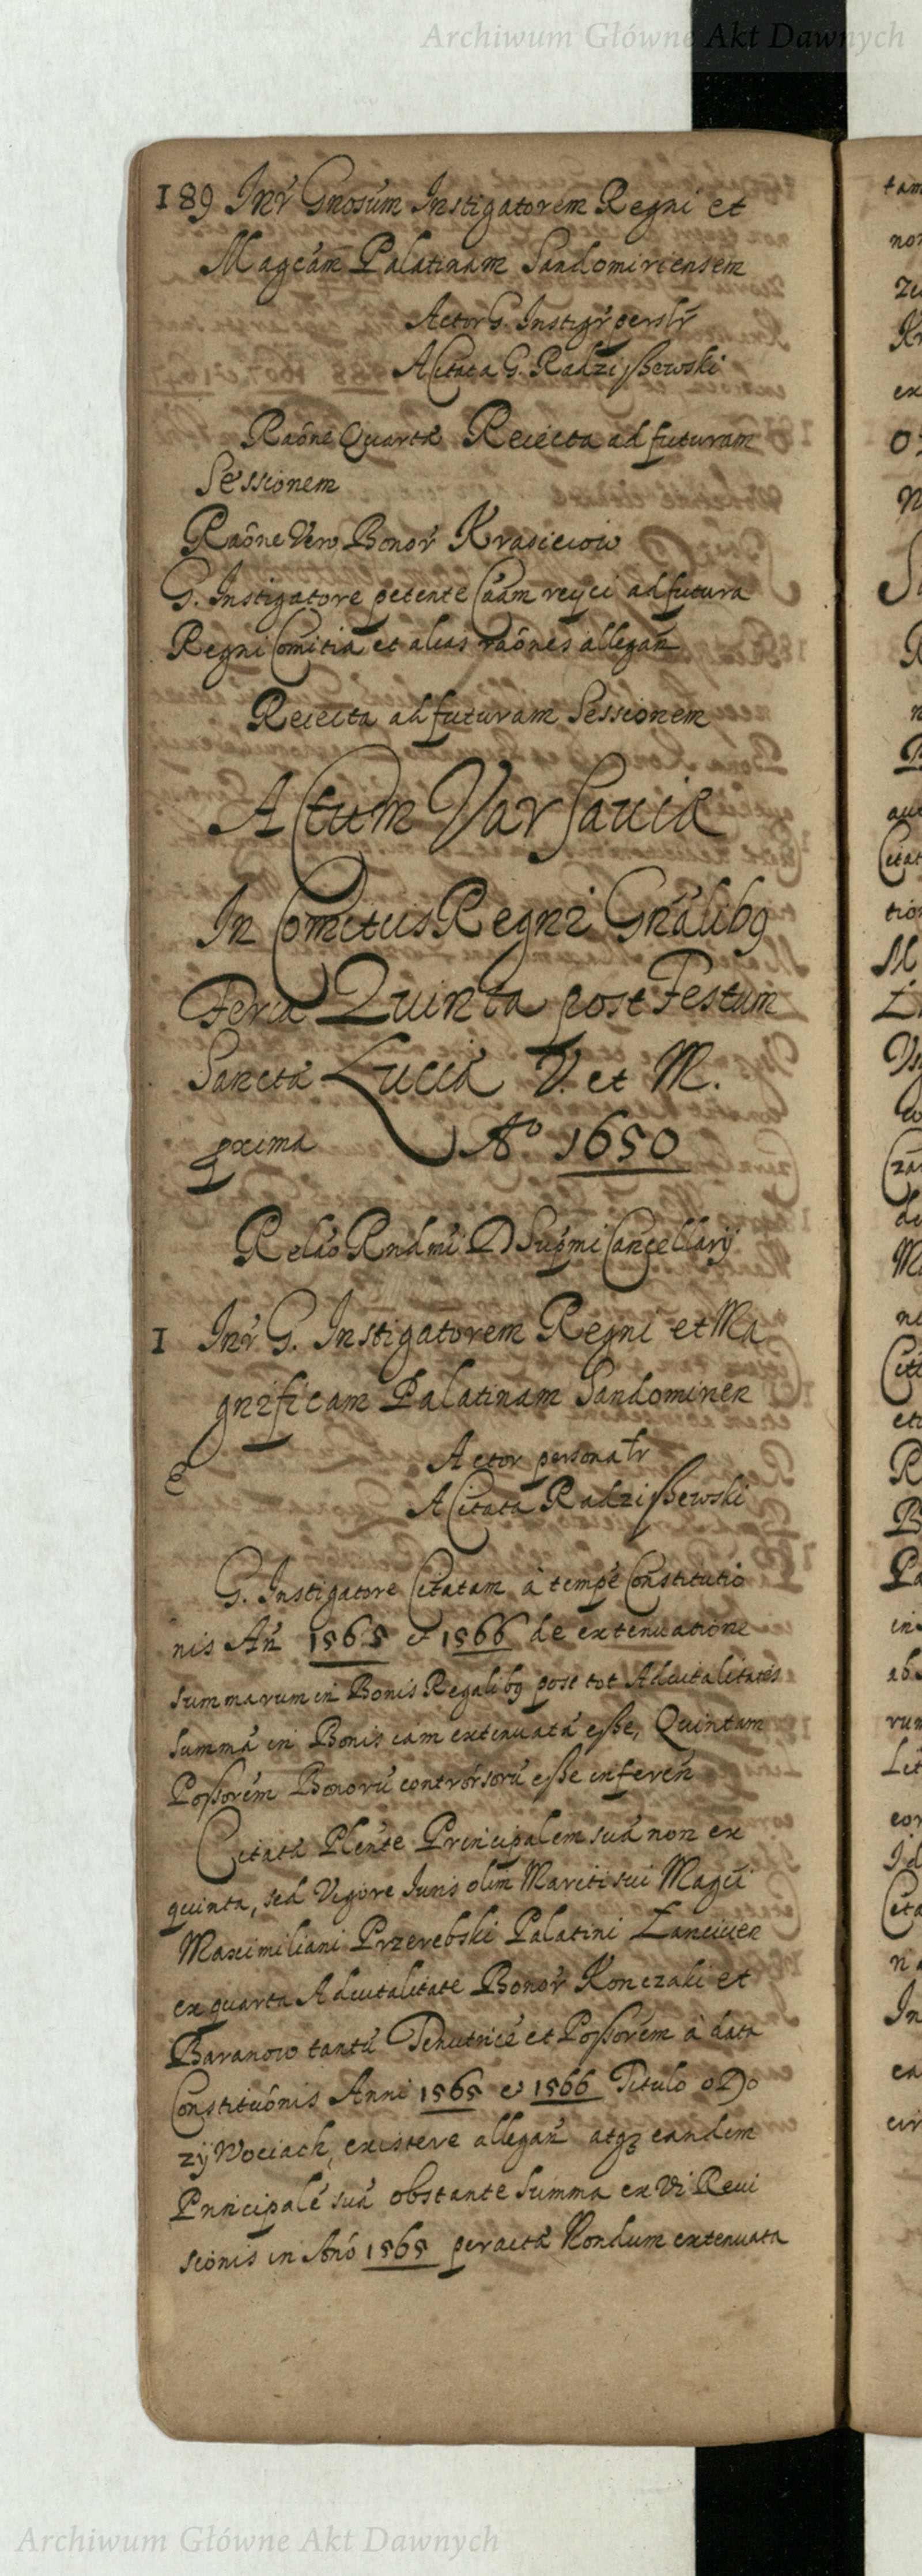 Archiwum Główne Akt Dawnych
189 Inr̃ Gnosum Instigatorem Regni et
Magcam Palatinam Sandomiriensem
Actor G. Instigr̃ persłr
A Citata G. Radziszewski
Raône Quarta Reiecta ad futuram
Sessionem
Raône Vero Bonor̃ Krasiciow
G. Instigatore petente Caām reyci ad futura
Regni Comitia et alias raônes allegañ
Reiecta ad futuram Sessionem
Actum Varsauiæ
In Comitiis Regni Gnâlibꝰ
Feria Quinta post Festum
Sanctæ Luciæ V. et M.
proxima Aº 1650
Relão Rndmi D Supmi Cancellarij
1 Inr̃ G. Instigatorem Regni et Ma
gnificam Palatinam Sandomirien
Actor personałr
A Citata Radziszewski
G. Instigatore Citatam à tempe Constitutio
nis Añ 1565 et 1566 de extenuatione
summarum in Bonis Regalibꝰ post tot Aduitalitates
summā in Bonis eam extenuatā esse, Quintam
Possorēm Bonorū controrsorū esse inferen̄
Citatæ Plente Principalem suā non ex
quinta, sed Vigore Iuris olim Mariti sui Magci
Maximiliani Przerebski Palatini Lancicien
ex quarta Aduitalitate Bonor̃ Konczaki et
Baranow tantū Tenutricē et Possorēm à data
Constituônis Anni 1565 et 1566 Titulo o Do
zywociach, existere allegañ atqꝫ eandem
Principalē suā obstante Summa ex Vi Reui
sionis in Añō 1565 peractæ Nondum extenuata
Archiwum Główne Akt Dawnych